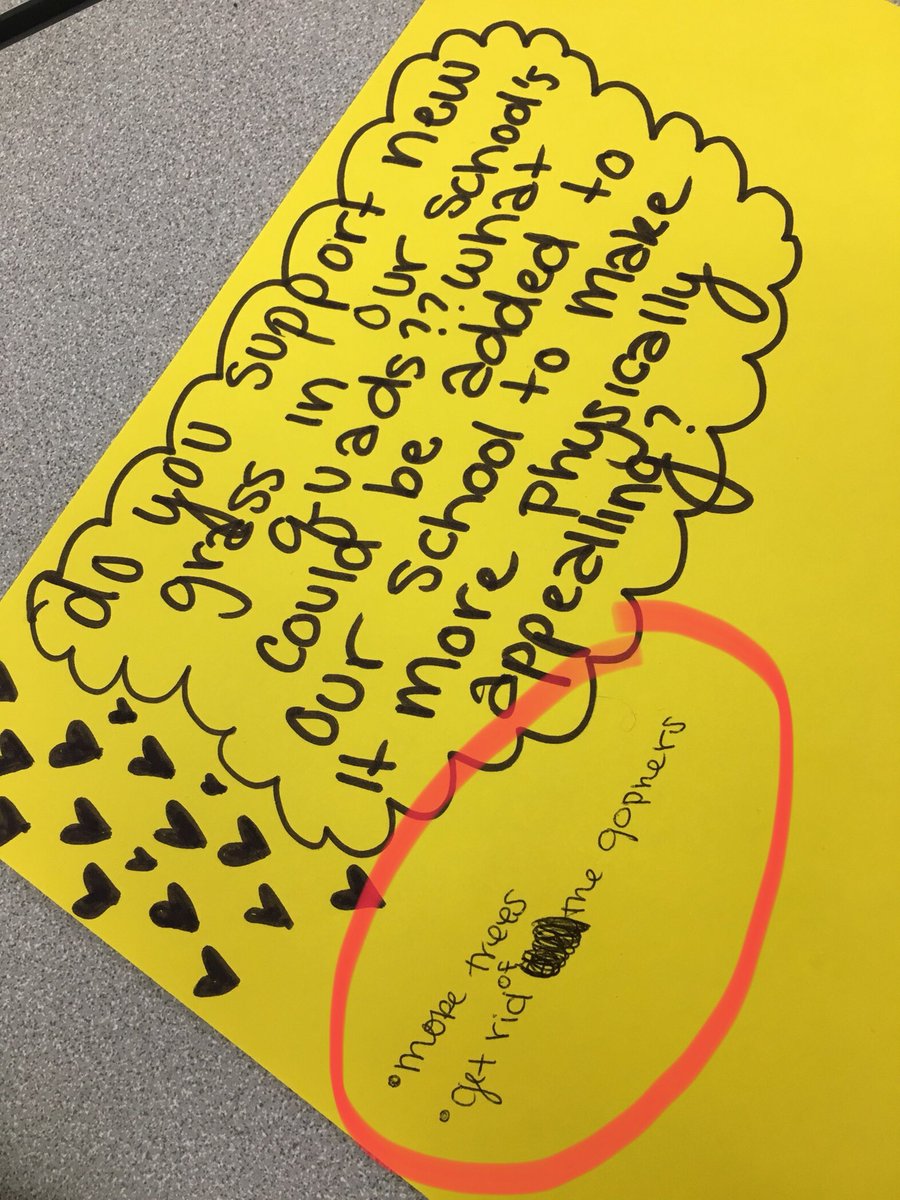 do you support new
grass in our school's
quads?? what
could be added to
our school to make
it more physically
appealling?
• more trees
• get rid of the gophers